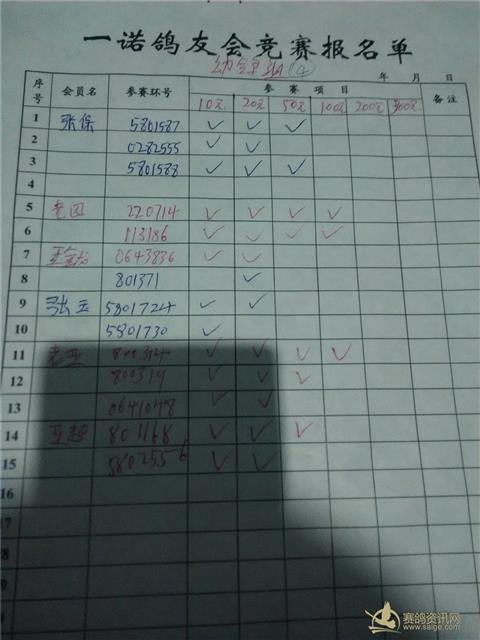 一诺鸽友会竞赛报名单
年 月 日
序号 会员名 参赛环号 参赛项目 备注
10元 20元 50元 100元 200元 300元
1 张保 5801587 ✓ ✓ ✓
2 0282555 ✓ ✓
3 5801588 ✓ ✓ ✓
4
5 220714 ✓ ✓ ✓ ✓
6 113186 ✓ ✓ ✓ ✓
7 0643836 ✓ ✓
8 801371 ✓
9 5801724 ✓ ✓
10 5801730 ✓
11 800314 ✓ ✓ ✓ ✓
12 800319 ✓ ✓ ✓
13 0641048 ✓ ✓
14 801168 ✓ ✓ ✓
15 5802556 ✓ ✓
16
17
8
9
赛鸽资讯网
www.saige.com